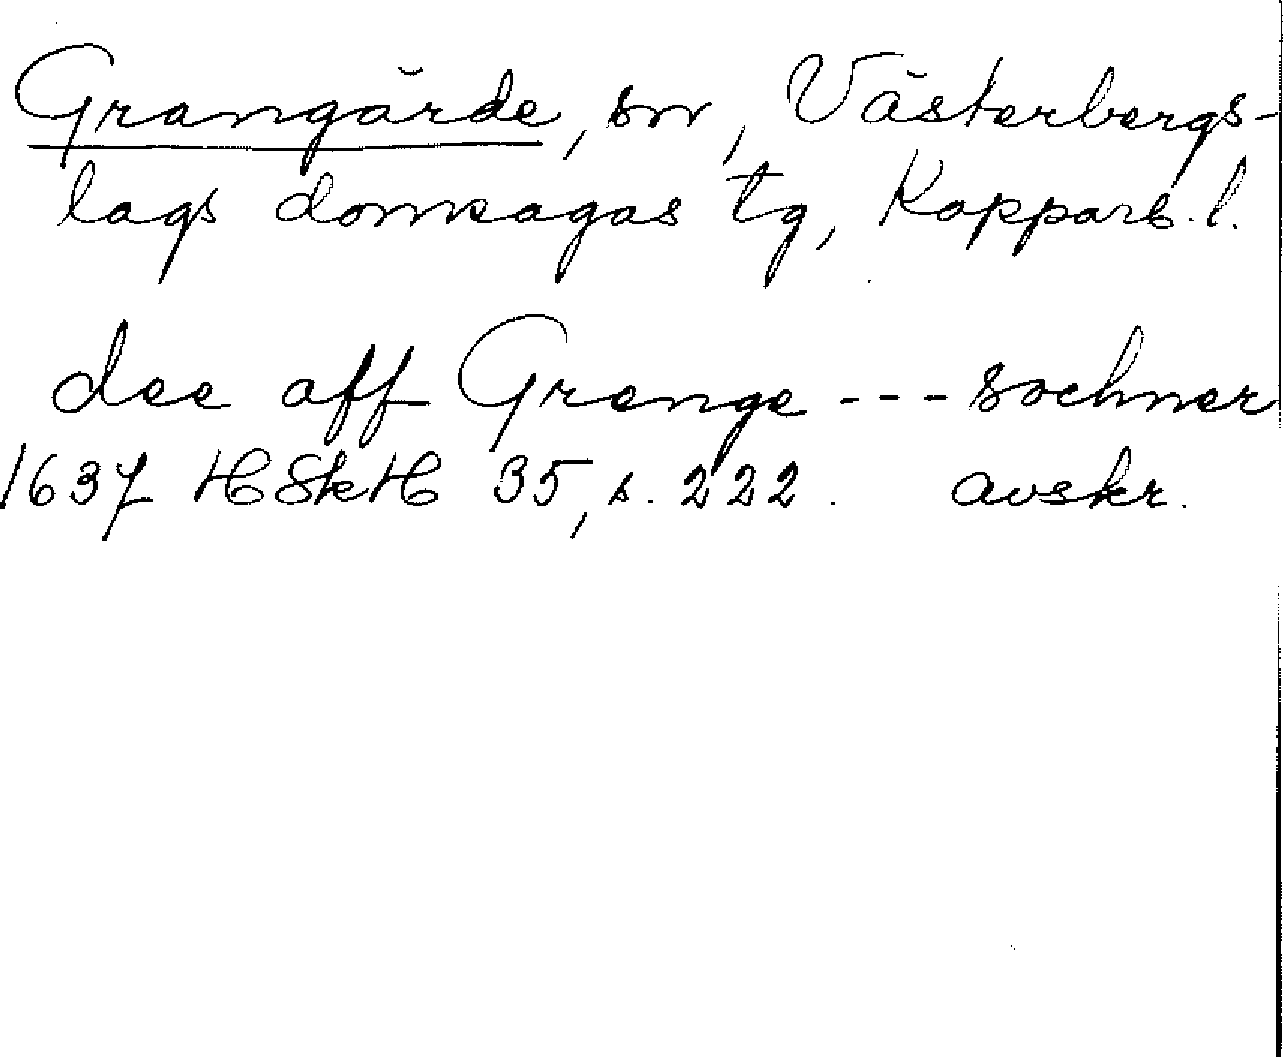 Grangärde, sn, Västerbergs-
lags domsagas tg, Kopparb. l.
dee aff Grenge --- sochner
1637 HSkH 35, s. 222. avskr.